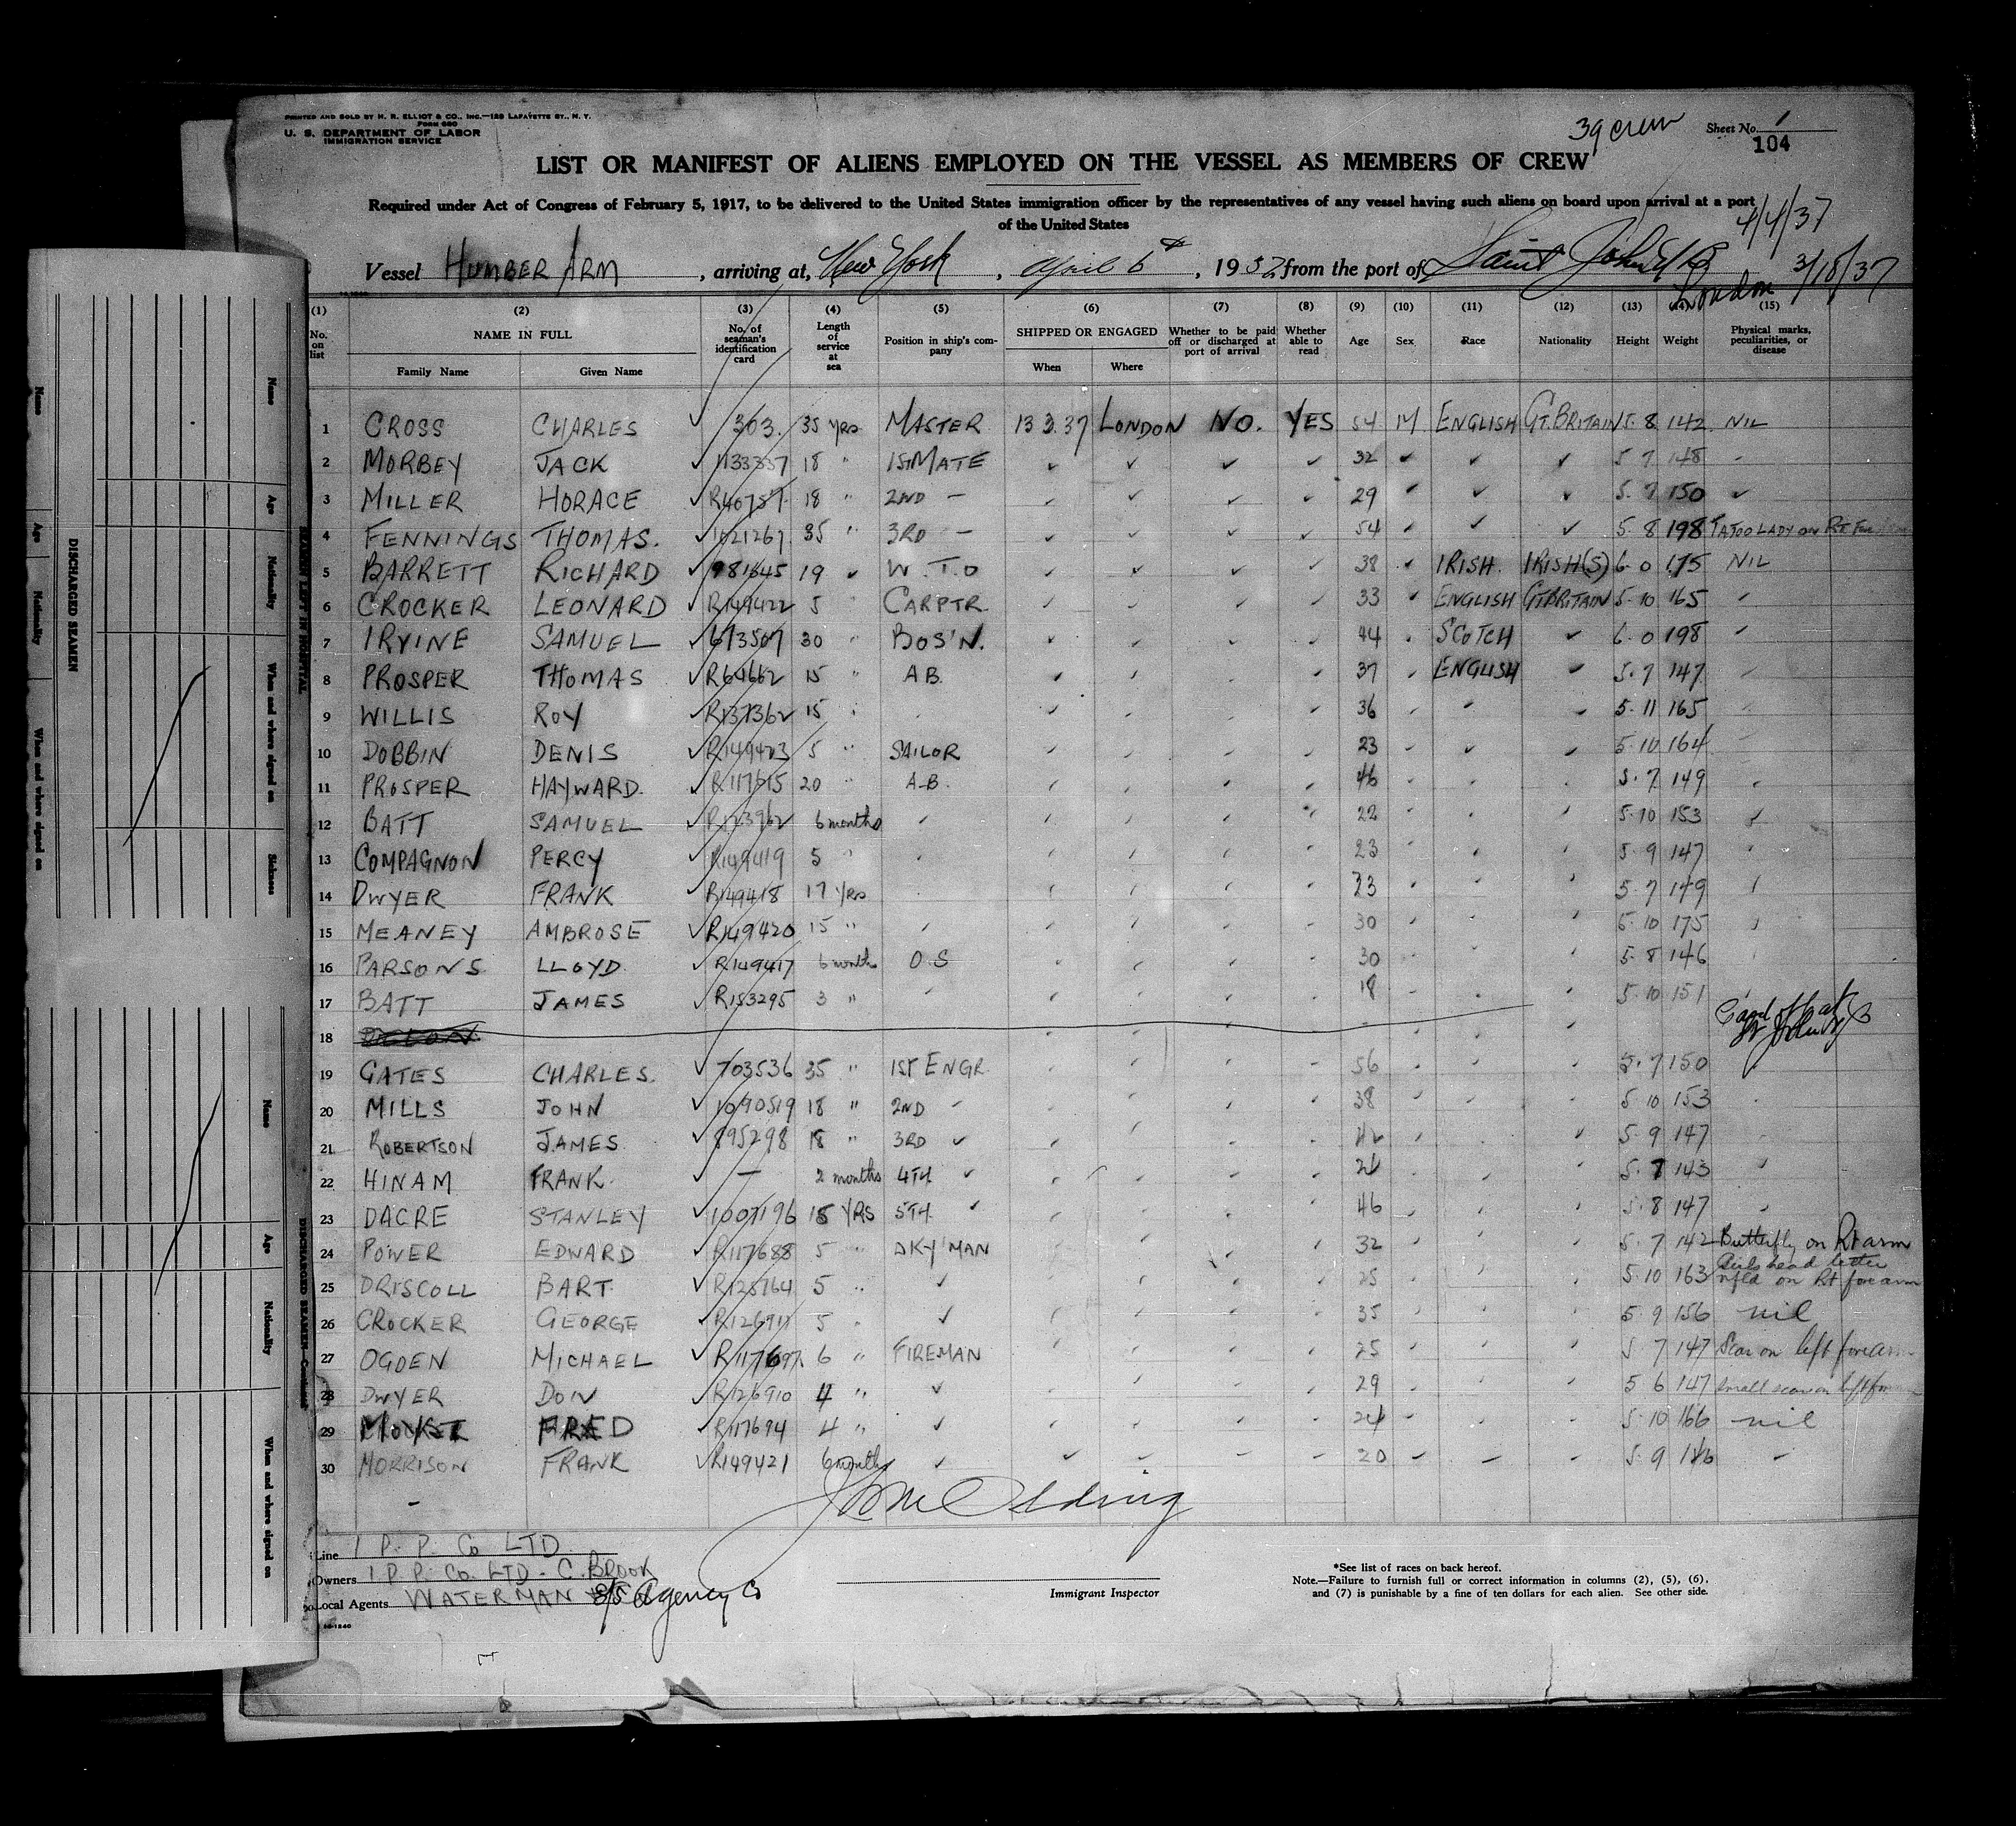 PRINTED AND SOLD BY H. R. ELLIOT & CO., INC.—129 LAFAYETTE ST., N. Y.
FORM 680
U. S. DEPARTMENT OF LABOR
IMMIGRATION SERVICE
39 crew
Sheet No. 1
104
LIST OR MANIFEST OF ALIENS EMPLOYED ON THE VESSEL AS MEMBERS OF CREW
Required under Act of Congress of February 5, 1917, to be delivered to the United States immigration officer by the representatives of any vessel having such aliens on board upon arrival at a port
of the United States
4/4/37
Vessel HUMBER ARM, arriving at, New York, April 6th, 1937 from the port of Saint John NB
London 3/18/37
(1) (2) (3) (4) (5) (6) (7) (8) (9) (10) (11) (12) (13) (14) (15)
No. on list NAME IN FULL No. of seaman's identification card Length of service at sea Position in ship's company SHIPPED OR ENGAGED Whether to be paid off or discharged at port of arrival Whether able to read Age Sex Race Nationality Height Weight Physical marks, peculiarities, or disease
Family Name Given Name When Where
1 CROSS CHARLES ✓ 303. 35 yrs MASTER 13 3.37 LONDON NO. YES 54 M ENGLISH GT. BRITAIN 5. 8 142 NIL
2 MORBEY JACK ✓ 1133337 18 " 1ST MATE ✓ ✓ ✓ ✓ 32 ✓ ✓ ✓ 5 7 148
3 MILLER HORACE ✓ R40757 18 " 2ND — ✓ ✓ ✓ ✓ 29 ✓ ✓ ✓ 5. 7 150 ✓
4 FENNINGS THOMAS. ✓ 1021267 35 " 3RD — ✓ ✓ ✓ ✓ 54 ✓ ✓ ✓ 5 8 198 TATOO LADY ON RT
5 BARRETT RICHARD ✓ 981645 19 W.T.O ✓ ✓ ✓ ✓ 38 ✓ IRISH. IRISH(S) 6. 0 175 NIL
6 CROCKER LEONARD ✓ R149422 5 " CARPTR. ✓ ✓ ✓ ✓ 33 ✓ ENGLISH GT. BRITAIN 5. 10 165 ✓
7 IRVINE SAMUEL ✓ 673507 30 " BOS'N. ✓ ✓ ✓ ✓ 44 SCOTCH ✓ 6. 0 198 ✓
8 PROSPER THOMAS ✓ R64662 15 " AB. ✓ ✓ ✓ ✓ 37 ENGLISH ✓ 5. 7 147
9 WILLIS ROY ✓ R131362 15 36 5. 11 165
10 DOBBIN DENIS ✓ R149423 5 " SAILOR 23 5. 10 164
11 PROSPER HAYWARD. ✓ R117615 20 A.B. 46 5. 7 149
12 BATT SAMUEL ✓ R123962 6 months 22 5. 10 153
13 COMPAGNON PERCY ✓ R149419 5 " 23 5. 9 147
14 DWYER FRANK ✓ R149418 17 yrs 23 5. 7 149
15 MEANEY AMBROSE ✓ R149420 15 " 30 5. 10 175
16 PARSONS LLOYD ✓ R149417 6 months O.S 30 5. 8 146
17 BATT JAMES ✓ R153295 3 " 18 5. 10 151
18
19 GATES CHARLES. ✓ 703536 35 " 1ST ENGR. 56 5. 7 150
20 MILLS JOHN ✓ 1090519 18 " 2ND 38 5 10 153
21 ROBERTSON JAMES ✓ 895298 18 " 3RD ✓ 42 5. 9 147
22 HINAM FRANK ✓ — 2 months 4TH ✓ 5. 7 143
23 DACRE STANLEY ✓ 1007196 15 YRS 5TH 46 5. 8 147
24 POWER EDWARD ✓ R117688 5 " DKY'MAN 32 5. 7 142 Butterfly on Rt arm
25 DRISCOLL BART ✓ R125764 5 " ✓ 25 5. 10 163 Girls head letter nfld on Rt forearm
26 CROCKER GEORGE ✓ 5 ✓ 35 5 9 156 nil
27 OGDEN MICHAEL ✓ R117697 6 " FIREMAN 25 5 7 147 Scar on left forearm
28 DWYER DON ✓ R126910 4 " ✓ 29 5 6 147 Small scar on left
29 FRED ✓ R117694 4 " ✓ 24 5. 10 166 nil
30 MORRISON FRANK ✓ R149421 6 months ✓ ✓ ✓ 20 5. 9
Line I. P. P. Co LTD
Owners I.P.P. Co. LTD - C. BROOK
Local Agents WATERMAN S/S Agency Co
Immigrant Inspector
*See list of races on back hereof.
Note.—Failure to furnish full or correct information in columns (2), (5), (6),
and (7) is punishable by a fine of ten dollars for each alien. See other side.
Name Age Nationality When and where signed on Sickness
SEAMEN LEFT IN HOSPITAL
DISCHARGED SEAMEN
Name Age Nationality When and where signed on
Name Age Nationality When and where signed on